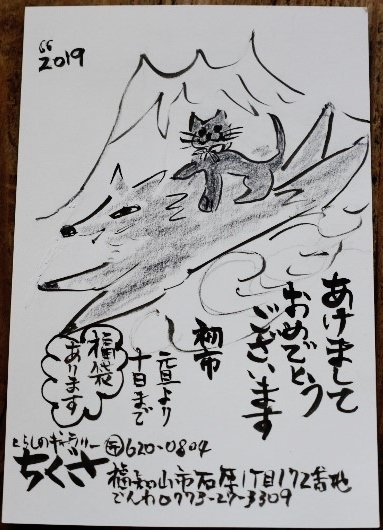 2019
あけまして
おめでとう
ございます
初市
元旦より
十日まで
福袋
あります
くらしのギャラリー
ちくさ
〒620-0804
福知山市石原1丁目172番地
でんわ0773-27-3309